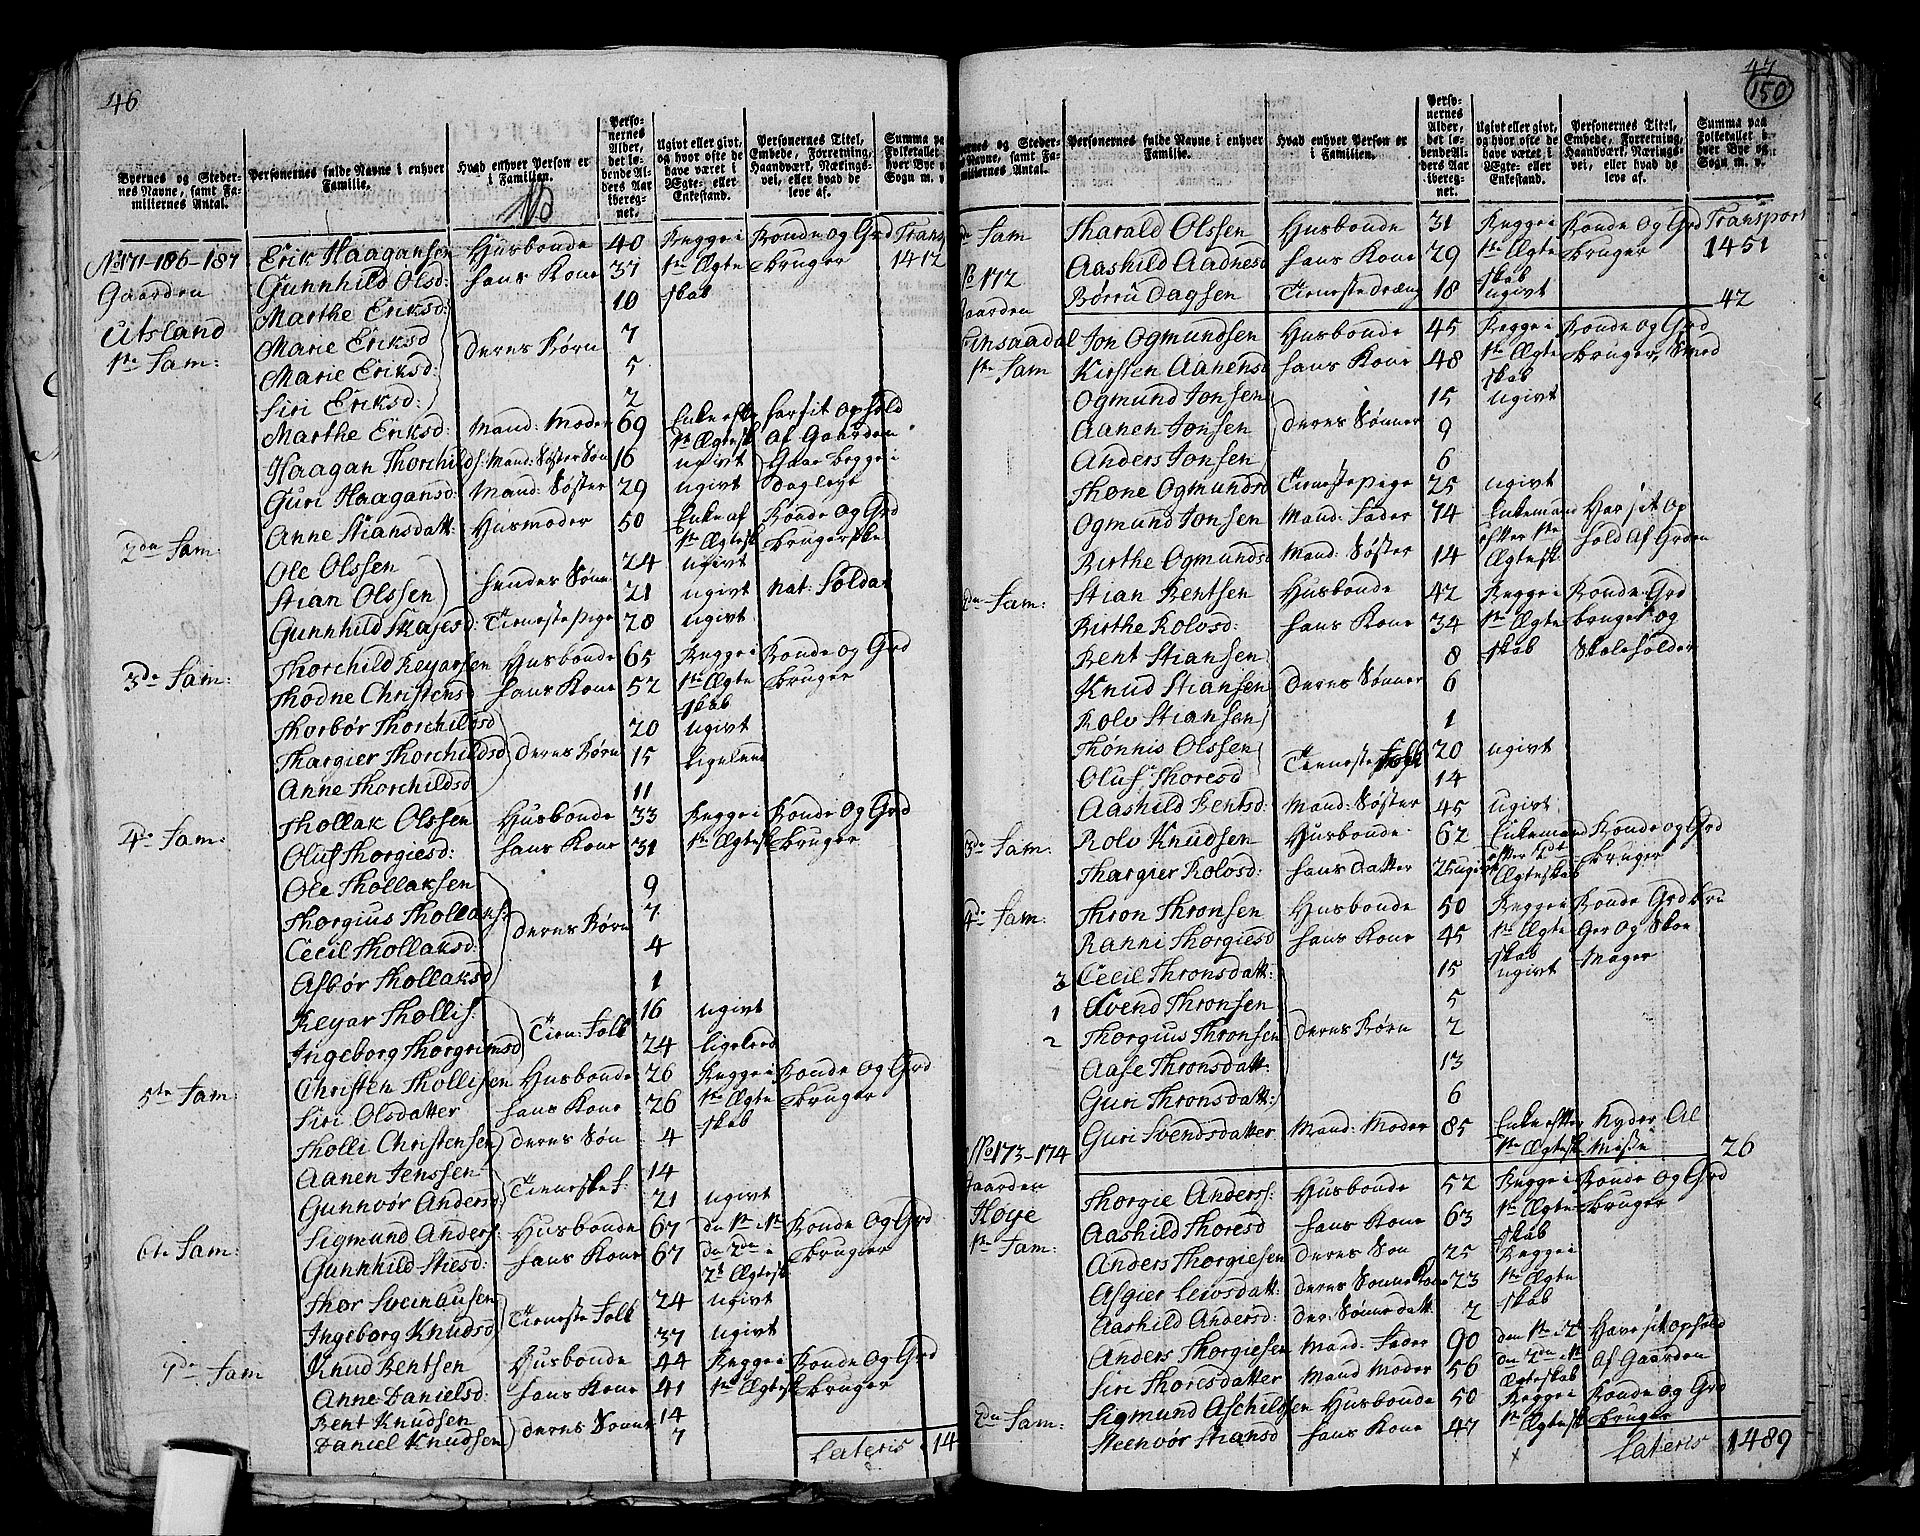 46
Byernes og Stedernes Navne, samt Familiernes Antal.
Personernes fulde Navne i enhver Familie.
Hvad enhver Person er i Familien.
Personernes Alder, det løbende Alders Aar iberegnet.
Ugivt eller givt, og hvor ofte de have været i Ægte- eller Enkestand.
Personernes Titel, Embede, Forretning, Haandværk, Næringsvei, eller hvad de leve af.
Summa paa Folketallet i hver Bye og Sogn m. v.
No 171-186-187 Erik Haagansen Husbonde 40 Begge i Bonde og Grd Trans
Gaarden Gunnhild Olsd: hans Kone 37 1te Ægte bruger 1412
Marthe Eriksd: 10 skab
Utsland Marie Eriksd 7
1te Fam: Marie Eriksd: deres Børn 5
Siri Eriksd: 2
Marthe Eriksd: Mand: Moder 69 Enke efter har sit ophold
Haagan Thorchilds: Mand: Søster Søn 16 ugivt Gaar begge i
1te Ægtesk af Gaarden
Guri Haagansd: Mand: Søster 29 ugivt Daglegt
2den Fam: Anne Stiansdatt: Husmoder 50 Enke af Bonde og Grd
1te Ægtesk brugerske
Ole Olssen 24 ugivt
Stian Olssen hendes Sønner 21 ugivt nat: Soldat
Gunnhild Skajesd: Tienestepige 20 ugivt
3de Fam: Thorchild Reyarsen Husbonde 65 Begge i Bonde og Grd
Thodne Christensd hans Kone 52 1te Ægte bruger
skab
Thorbør Thorchildsd 20 ugivt
Thargier Thorchildsd deres Børn 15 ligeleed
Anne Thorchildsd 11
4de Fam: Thollak Olssen Husbonde 33 Begge i Bonde og Grd
Oluf Thorgiesd: hans Kone 31 1te Ægtesk bruger
Ole Thollaksen 9
Thorgius Thollaks: 7
Cecil Thollaksd: deres Børn 4
Asbør Thollaksd 1
Reyar Thollis: 16 ugivt
Ingeborg Thorgrimsd Tiene: Folk 24 ligeleed
5te Fam: Christen Thollisen Husbonde 26 Begge i Bonde og Grd
Siri Olsdatter hans Kone 26 1te Ægte bruger
skab
Tholli Christensen deres Søn 4
Aanen Jenssen 14
Gunnvør Andersd Tieneste f: 21 ugivt
6te Fam: Sigmund Anders: Husbonde 67 den 1te i 1te Bonde og Grd
Gunnhild Stiesd: hans Kone 67 den 2den i bruger
2de Ægtesk
Thor Sveinausen 24 ugivt
Ingeborg Knudsd Tieneste Folk 37 ugivt
7de Fam Knud Bentsen Husbonde 44 Begge i Bonde og Grd
Anne Danielsd: hans Kone 41 1te Ægtesk bruger
Bent Knudsen 14
Daniel Knudsen deres Sønner 7
Lateris 14
47
150
ernes og Stedernes Navne, samt Familiernes Antal.
Personernes fulde Navne i enhver Familie.
Hvad enhver Person er i Familien.
Personernes Alder, det løbende Alders Aar iberegnet.
Ugivt eller givt, og hvor ofte de have været i Ægte- eller Enkestand.
Personernes Titel, Embede, Forretning, Haandværk, Næringsvei, eller hvad de leve af.
Summa paa Folketallet i hver Bye og Sogn m. v.
Fam Tharald Olssen Husbonde 31 Begge i Bonde og Grd Transport
Aashild Aadnesd hans Kone 29 1te Ægte bruger 1451
No 172 skab
Børru Dagsen Tienestedræng 18 ugivt
aarden 42
Ansaadal Jon Ogmundsen Husbonde 45 Begge i Bonde og Grd
1te Fam Kirsten Aanensd hans Kone 48 1te Ægte bruger, Smed
skab
Ogmund Jonsen 15 ugivt
Aanen Jonsen deres Sønner 9
Anders Jonsen 6
Thone Ogmundsd Tienestepige 25 ugivt
Ogmund Jonsen Mand: Fader 74 Enkemand Har sit op
efter 1te hold af Grden
Birthe Ogmundsd Mand: Søster 14 Ægtesk
den Fam: Stian Bentsen Husbonde 42 Begge i Bonde Grd
Birthe Rolvsd: hans Kone 34 1te Ægte bruger og
Bent Stiansen 8 skab Skoleholder
Knud Stiansen deres Sønner 6
Rolv Stiansen 1
Thønnis Olssen 20 ugivt
Oluf Thoresd Tieneste Folk 14
Aashild Bentsd: Mand: Søster 45 ugivt
3de Fam: Rolv Knudsen Husbonde 62 Enkemand Bonde og Grd
efter 2det bruger
Thargier Rolvsd: hans Datter 25 ugivt Ægteskab
4de Fam: Thron Thronsen Husbonde 50 Begge i Bonde Grd bru
Ranni Thorgiesd hans Kone 45 1te Ægte ger og Skoe
skab
3 Cecil Thronsdatt: 15 ugivt mager
1 Svend Thronsen 5
2 Thorgius Thronsen deres Børn 2
Aase Thronsdatt: 13
Guri Thronsdatt: 6
Guri Svendsdatter Mand: Moder 85 Enke efter Nyder Al
No 173-174 1te Ægtesk misse 26
aarden Thorgie Anderss: Husbonde 52 Begge i Bonde og Grd
Høye Aashild Thoresd hans Kone 63 1te Ægte bruger
1te Fam: skab
Anders Thorgiesen deres Søn 25 Begge i
Asgier Leivsdatt: deres Sønne Kone 23 1te Ægte
Aashild Andersd: der: Sønnedatt 2 skab
Anders Thorgiesen Mand: Fader 90 den 1te i 2de Have sit ophold
Siri Thoresdatter Mand Moder 56 den 2den i 1te af Gaarden
Ægteskab
2den Fam: Sigmund Aschildsen Husbonde 50 Begge i Bonde og Grd
Steenvør Stiansd hans Kone 47 1te Ægtesk bruger
Lateris 1489